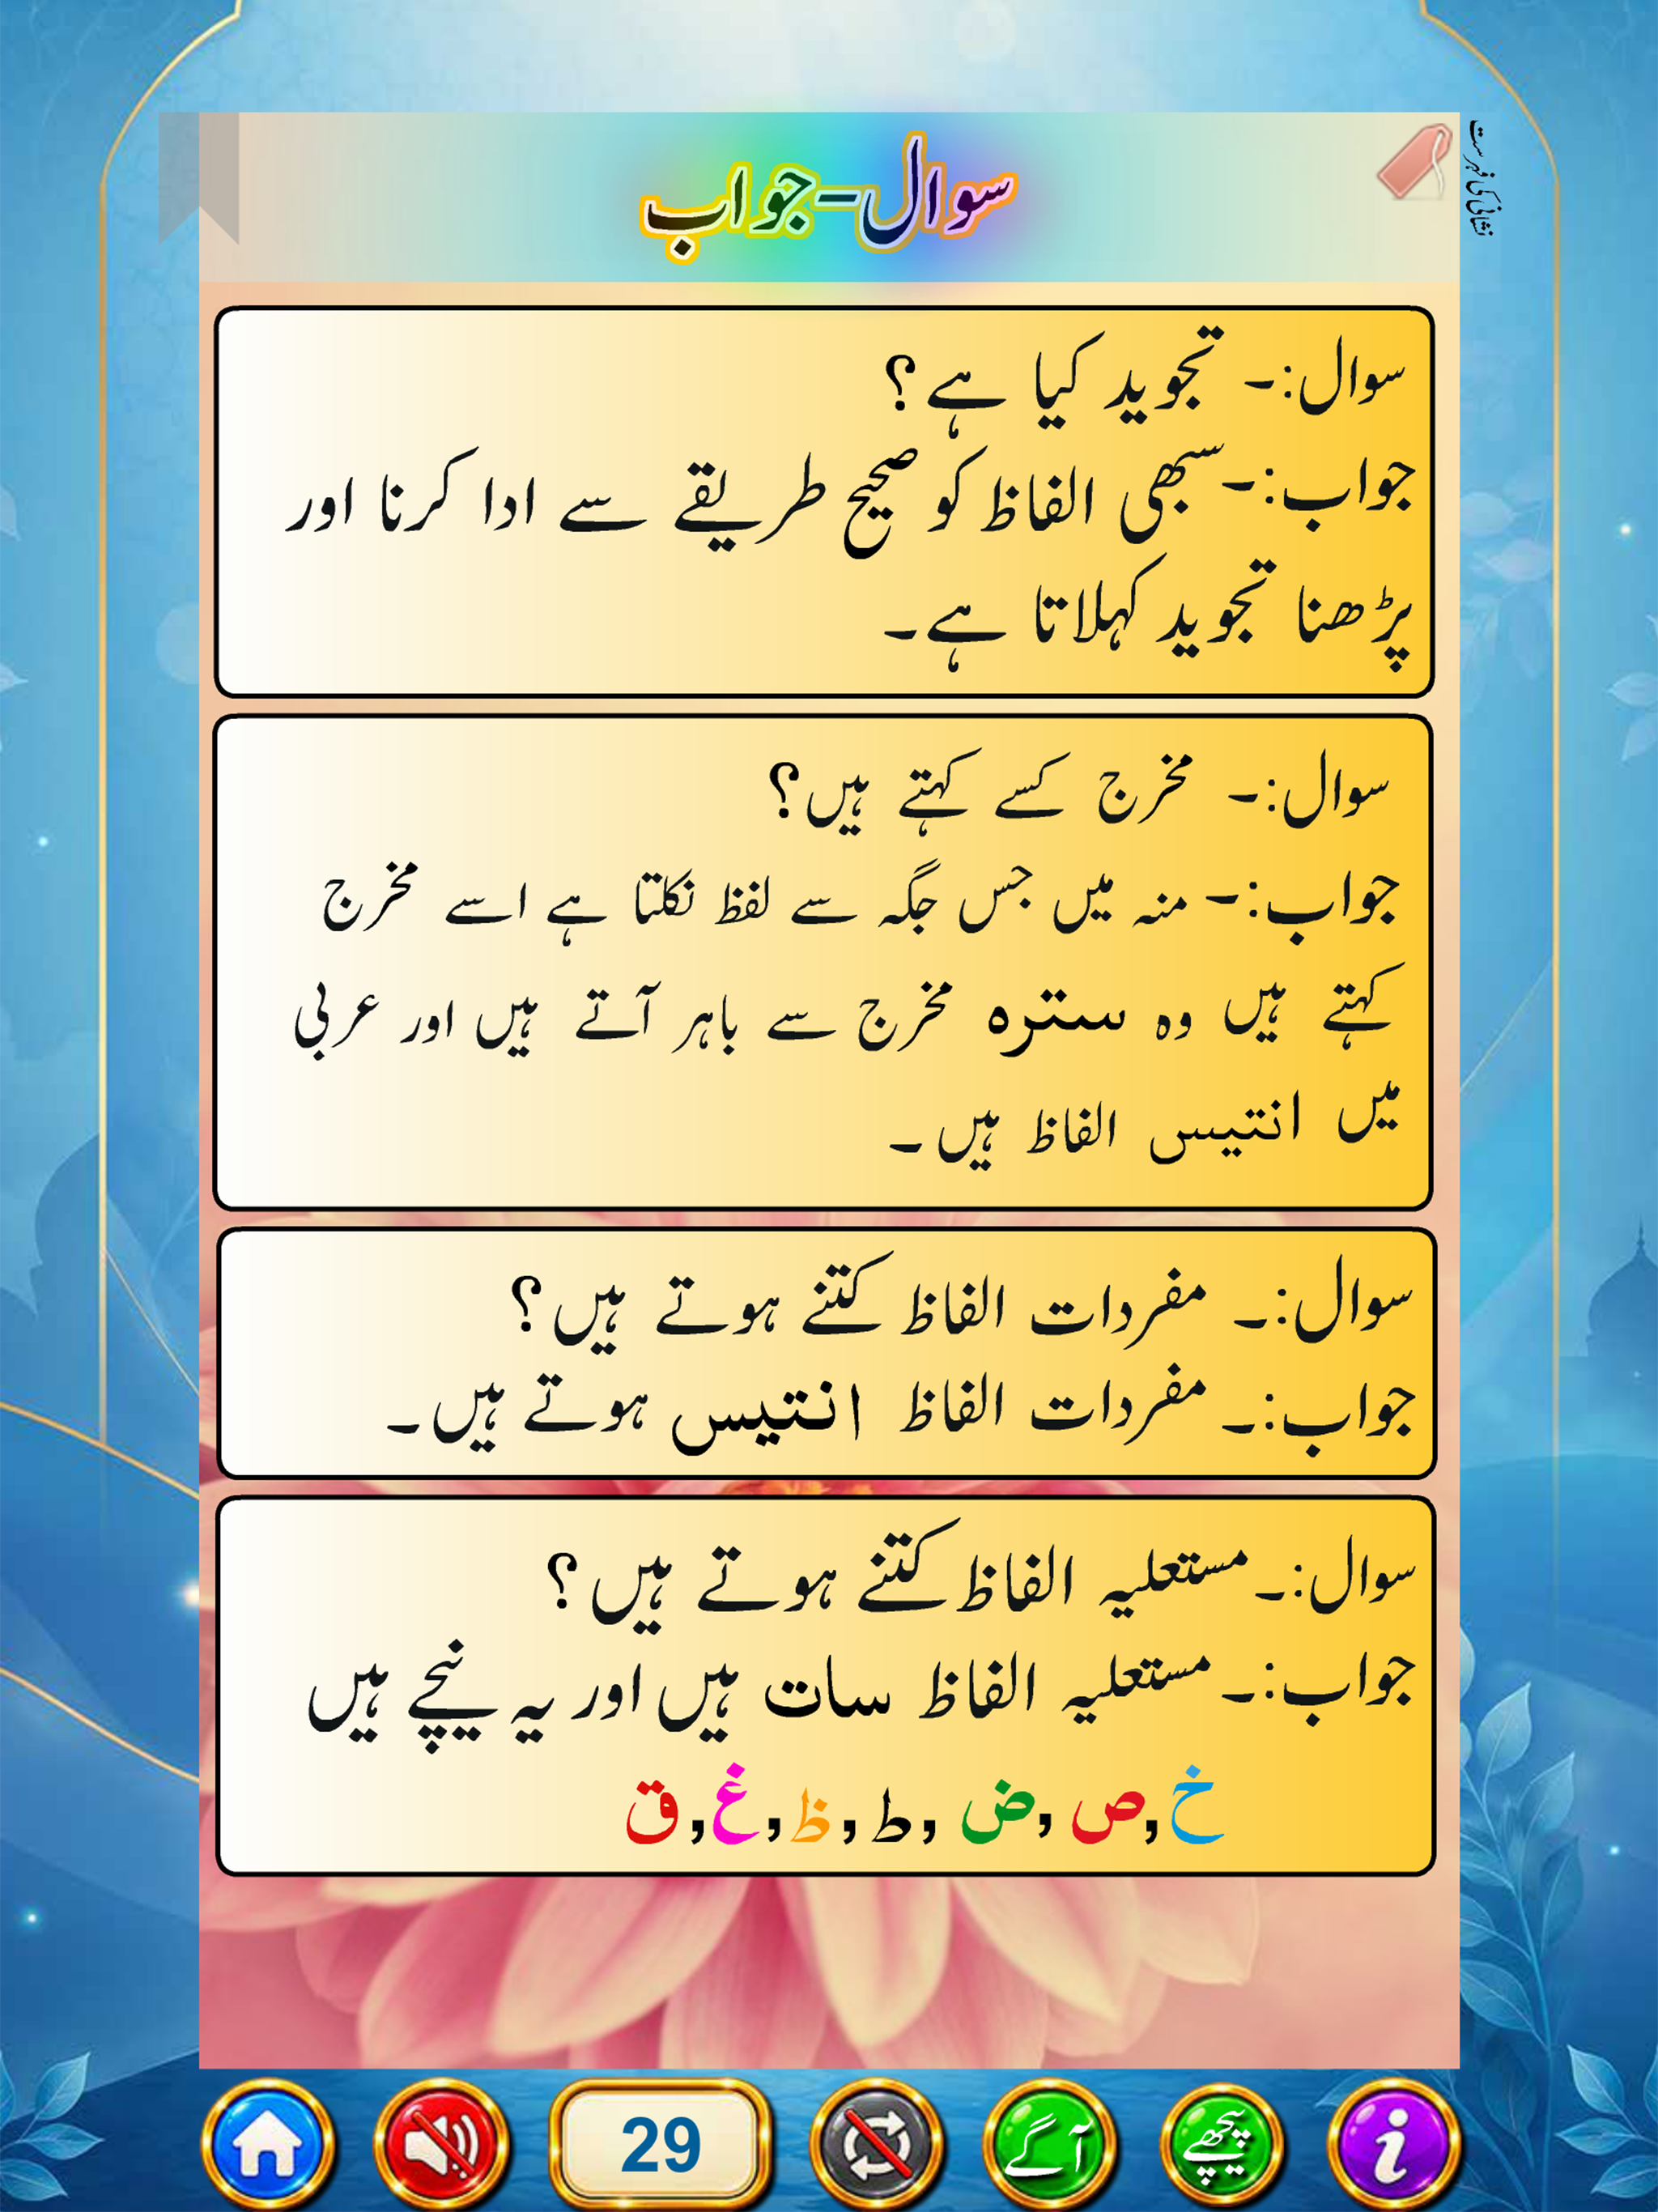 سوال-جواب
نشانی کی فہرست
سوال:۔ تجوید کیا ہے؟
جواب:۔ سبھی الفاظ کو صحیح طریقے سے ادا کرنا اور
پڑھنا تجوید کہلاتا ہے۔
سوال:۔ مخرج کسے کہتے ہیں؟
جواب:۔ منہ میں جس جگہ سے لفظ نکلتا ہے اسے مخرج
کہتے ہیں وہ سترہ مخرج سے باہر آتے ہیں اور عربی
میں انتیس الفاظ ہیں۔
سوال:۔ مفردات الفاظ کتنے ہوتے ہیں؟
جواب:۔ مفردات الفاظ انتیس ہوتے ہیں۔
سوال:۔ مستعلیہ الفاظ کتنے ہوتے ہیں؟
جواب:۔ مستعلیہ الفاظ سات ہیں اور یہ نیچے ہیں
خ,ص,ض,ط,ظ,غ,ق
29 آگے پیچھے i